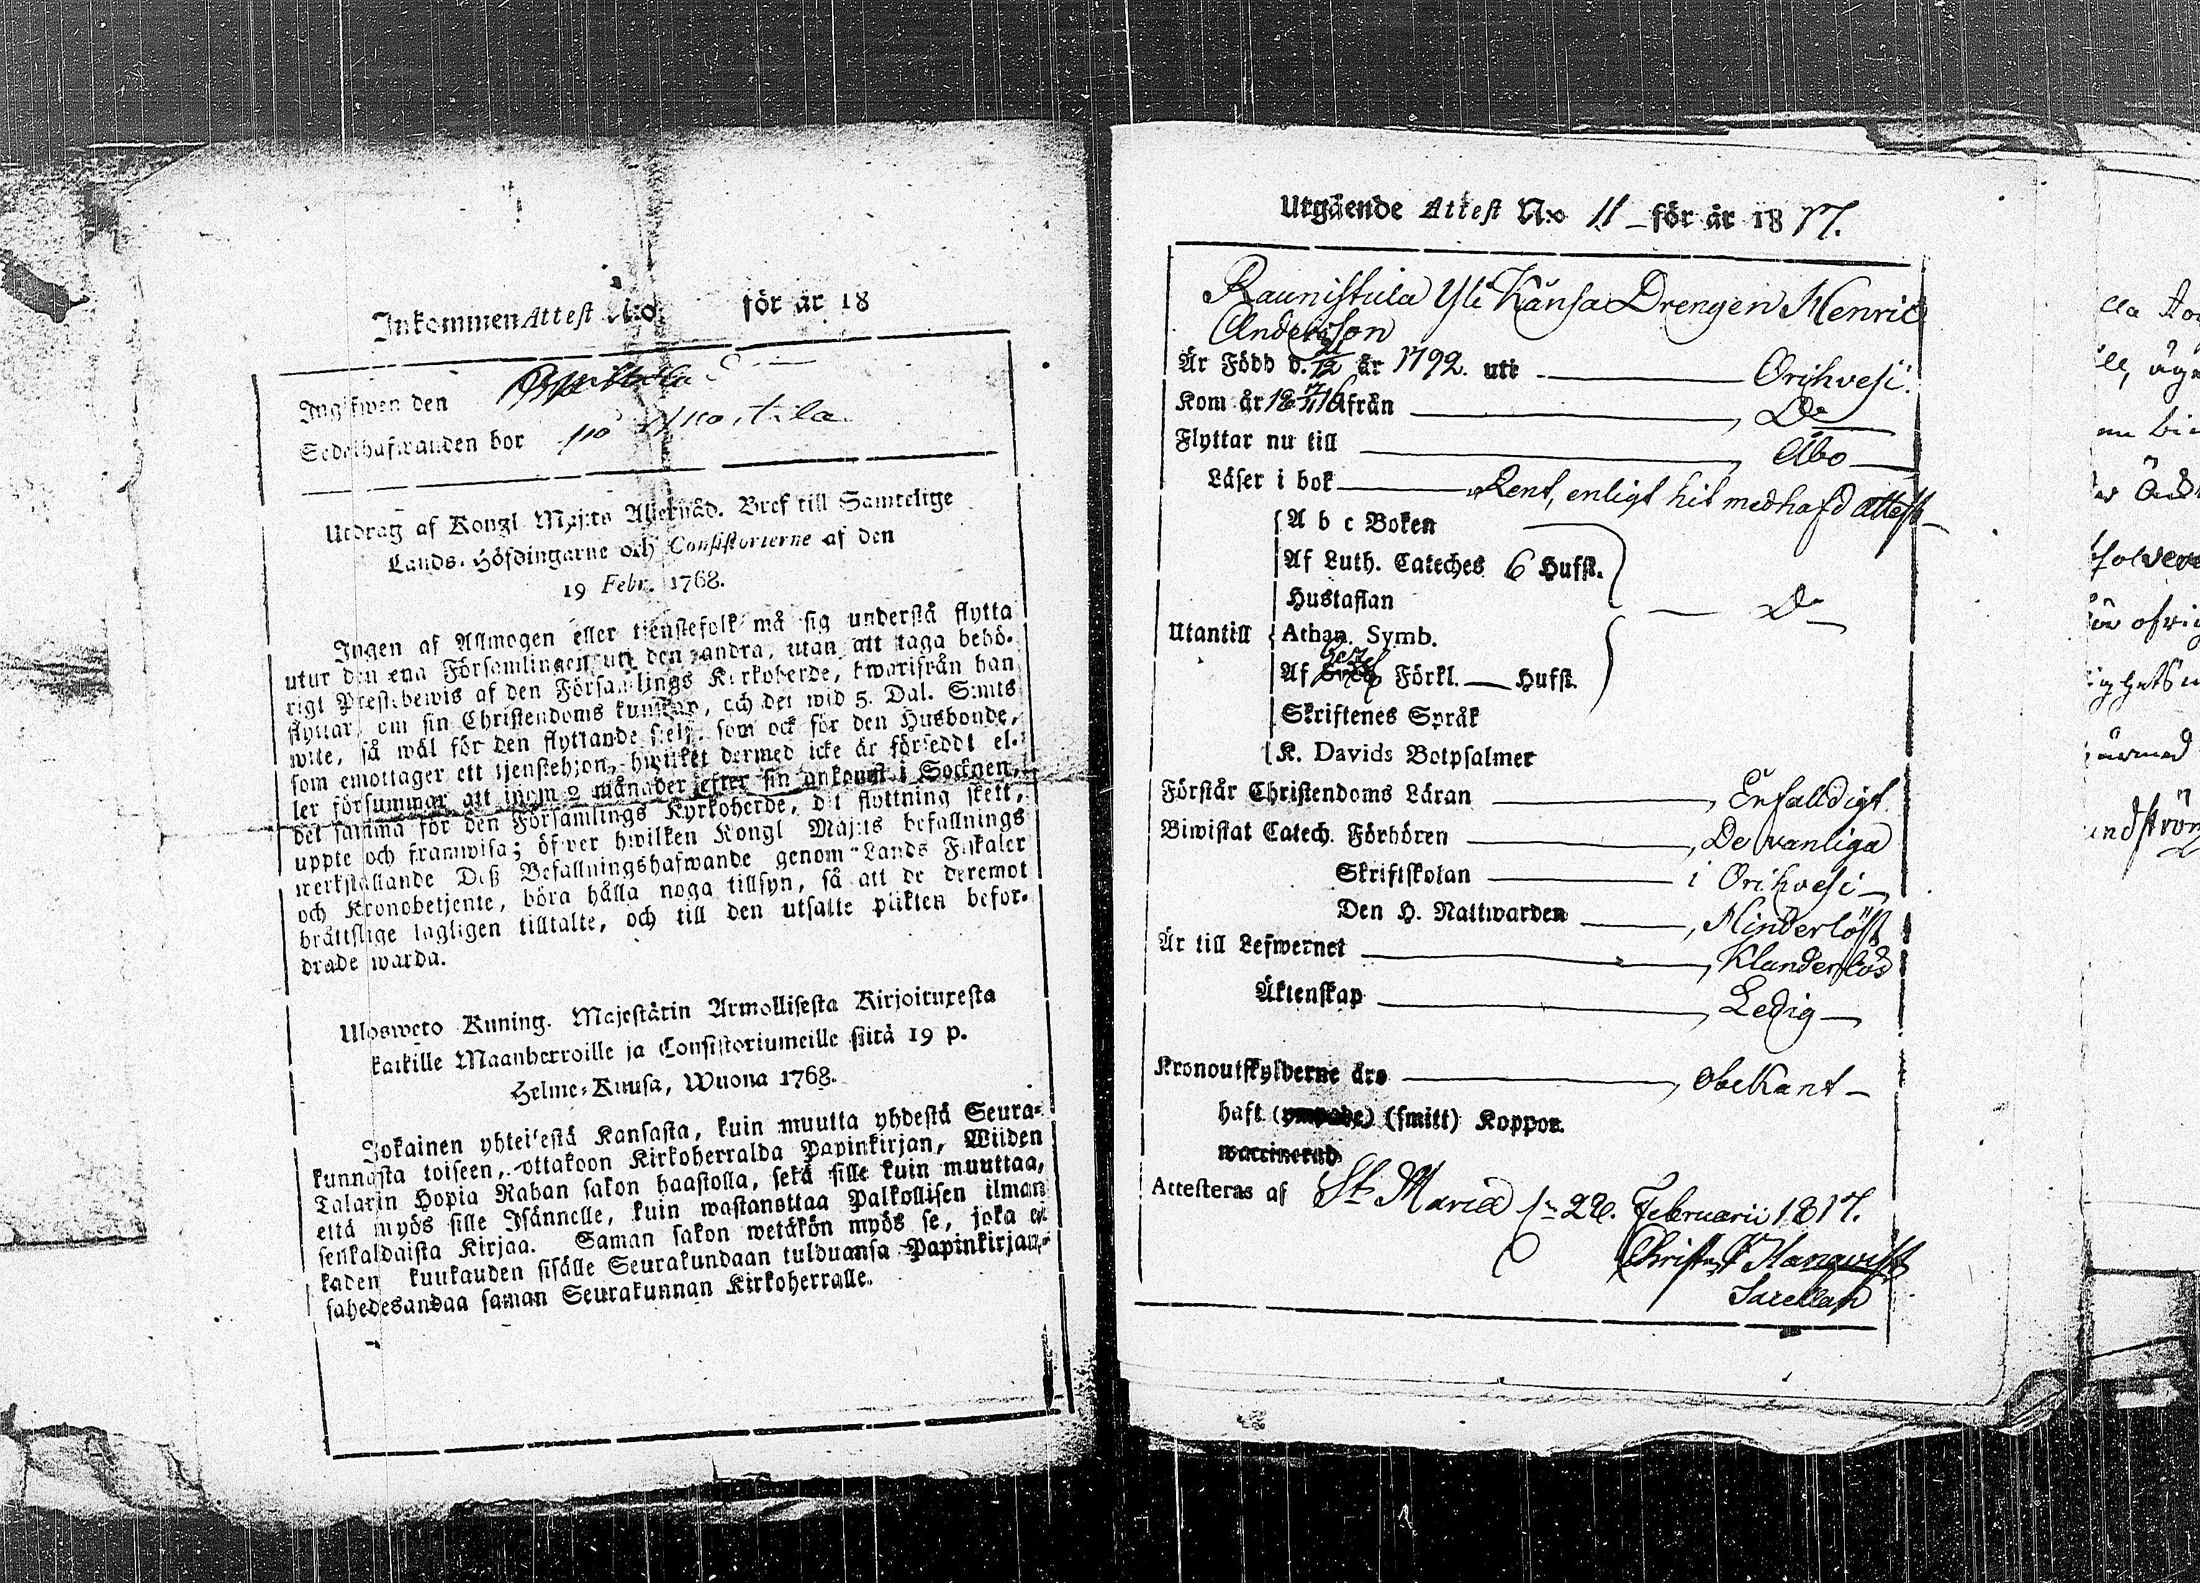 Inkommen Attest N:o för år 18
Ingifwen den
Sedelhafwanden bor på
Utdrag af Kongl. Maj:ts Allernåd. Bref till Samtelige
Lands-Höfdingarne och Consistorierne af den
19 Febr. 1768.
Ingen af Allmogen eller tjenstefolk må sig understå flytta
utur den ena Församlingen uti den andra, utan att taga behö-
rigt Prestebewis af den Församlings Kyrkoherde, hwarifrån han
flyttar, om sin Christendoms kunskap, och det wid 5. Dal. S:mts
wite, så wäl för den flyttande sjelf, som ock för den Husbonde,
som emottager ett tjenstehjon, hwilket dermed icke är försedt el-
ler försummar att inom 2 månader efter sin ankomst i Socknen,
det samma för den Församlings Kyrkoherde, dit flyttning skett,
uppte och framwisa; öfwer hwilken Kongl Maj:ts befallnings
werkställande Deß Befallningshafwande genom Lands Fiskaler
och Kronobetjente, böra hålla noga tillsyn, så att de deremot
bråttslige lagligen tilltalte, och till den utsatte plikten befor-
drade warda.
Ulosweto Kuning. Majestätin Armollisesta Kirjoituxesta
kaikille Maanherroille ja Consistoriumeille siitä 19 p.
Helme-Kuusa, Wuona 1768.
Jokainen yhteisestä Kansasta, kuin muutta yhdestä Seura-
kunnasta toiseen, ottakoon Kirkoherralda Papinkirjan, Wiiden
Talarin Hopia Rahan sakon haastolla, sekä sille kuin muuttaa,
että myös sille Isännelle, kuin wastanottaa Palkollisen ilman
senkaldaista Kirjaa. Saman sakon wetäkön myös se, joka ei
kaden kuukauden sisälle Seurakundaan tulduansa Papinkirjan-
sahedesandaa saman Seurakunnan Kirkoherralle.
Utgående Attest N:o 11 för år 1817.
Raunistula Yli Känsä Drengen Henric
Andersson
Är Född d. år 1792. uti Orihvesi.
Kom år från Do
Flyttar nu till Åbo
Läser i bok Rent, enligt hit medhafd attest
A b c Boken
Af Luth. Cateches 6 Hufst.
Hustaflan Do
Utantill Athan. Symb.
Af Förkl. Hufst.
Skriftenes Språk
K. Davids Botpsalmer
Förstår Christendoms Läran Enfalldigt
Biwistat Catech. Förhören De vanliga
Skriftskolan i Orihvesi
Den H. Nattwarden Hinderlöst
Är till Lefwernet Klanderlös
Äktenskap Ledig
Kronoutskylderne äro obekant
haft (smitt) Koppor.
waccinerad
Attesteras af St. Maria d. 22. Februarii 1817.